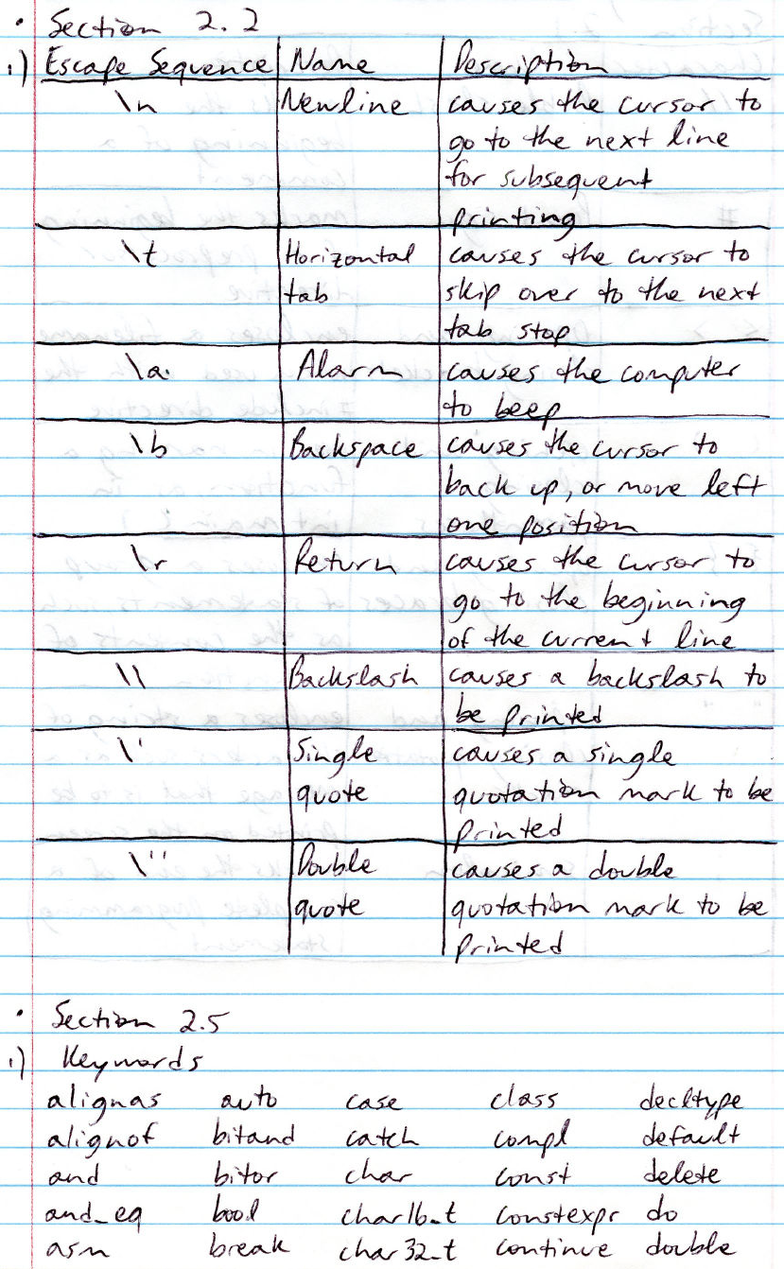 • Section 2.2
1) Escape Sequence Name Description
\n Newline causes the cursor to
go to the next line
for subsequent
printing
\t Horizontal causes the cursor to
tab skip over to the next
tab stop
\a Alarm causes the computer
to beep
\b Backspace causes the cursor to
back up, or move left
one position
\r Return causes the cursor to
go to the beginning
of the current line
\\ Backslash causes a backslash to
be printed
\' Single causes a single
quote quotation mark to be
printed
\" Double causes a double
quote quotation mark to be
printed
• Section 2.5
1) Keywords
alignas auto case class decltype
alignof bitand catch compl default
and bitor char const delete
and_eq bool char16_t constexpr do
asm break char32_t continue double